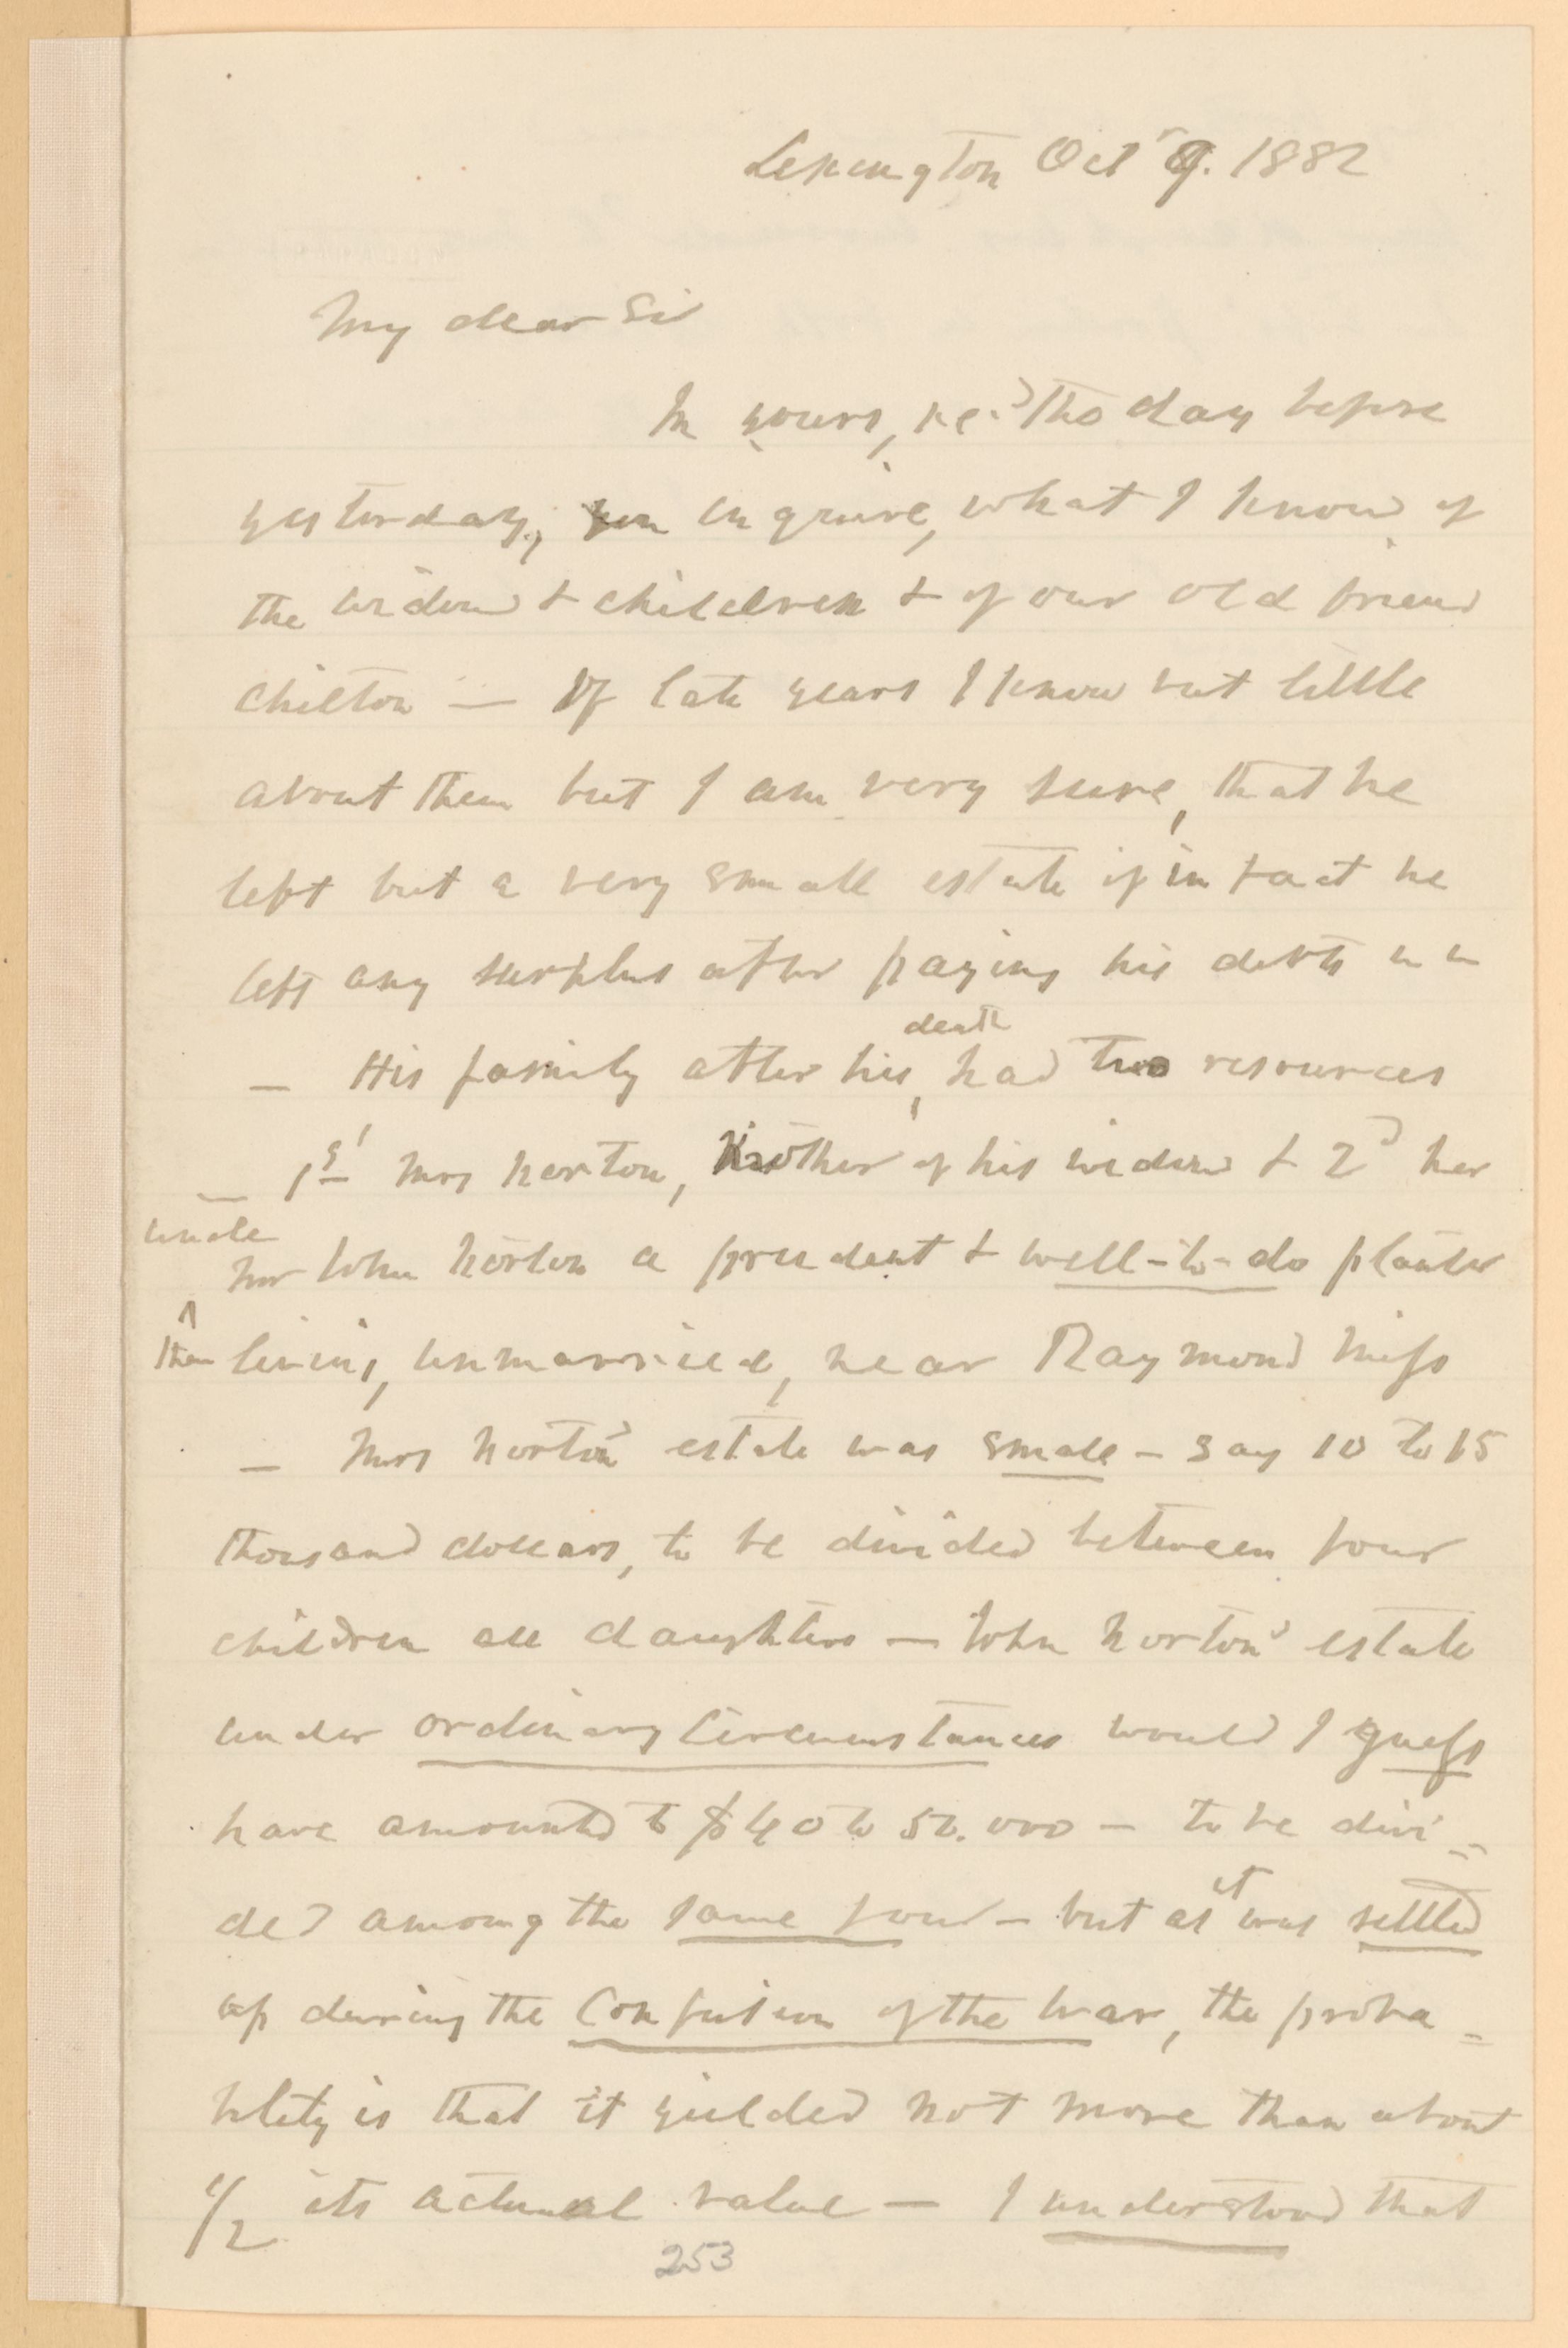 Lexington Oct 9. 1882
My dear Sir
In yours, recd the day before
yesterday, you inquire, what I know of
the widow & children & of our old friend
Chilton — Of late years I know but little
about them but I am very sure, that he
left but a very small estate if in fact he
left any surplus after paying his debts
death
— His family after his had two resources
— 1st Mrs Norton, Mother of his widow & 2d her
uncle
Mr John Norton a prudent & well-to-do planter
then living, unmarried, near Raymond Miss
— Mrs Norton's estate was small — say 10 to 15
thousand dollars, to be divided between four
children all daughters — John Norton's estate
under ordinary circumstances would I guess
have amounted to $40 to 50.000 — to be divi-
ded among the same four — but as it was settled
up during the Confusion of the War, the proba-
bility is that it yielded not more than about
1/2 its actual value — I understood that
253